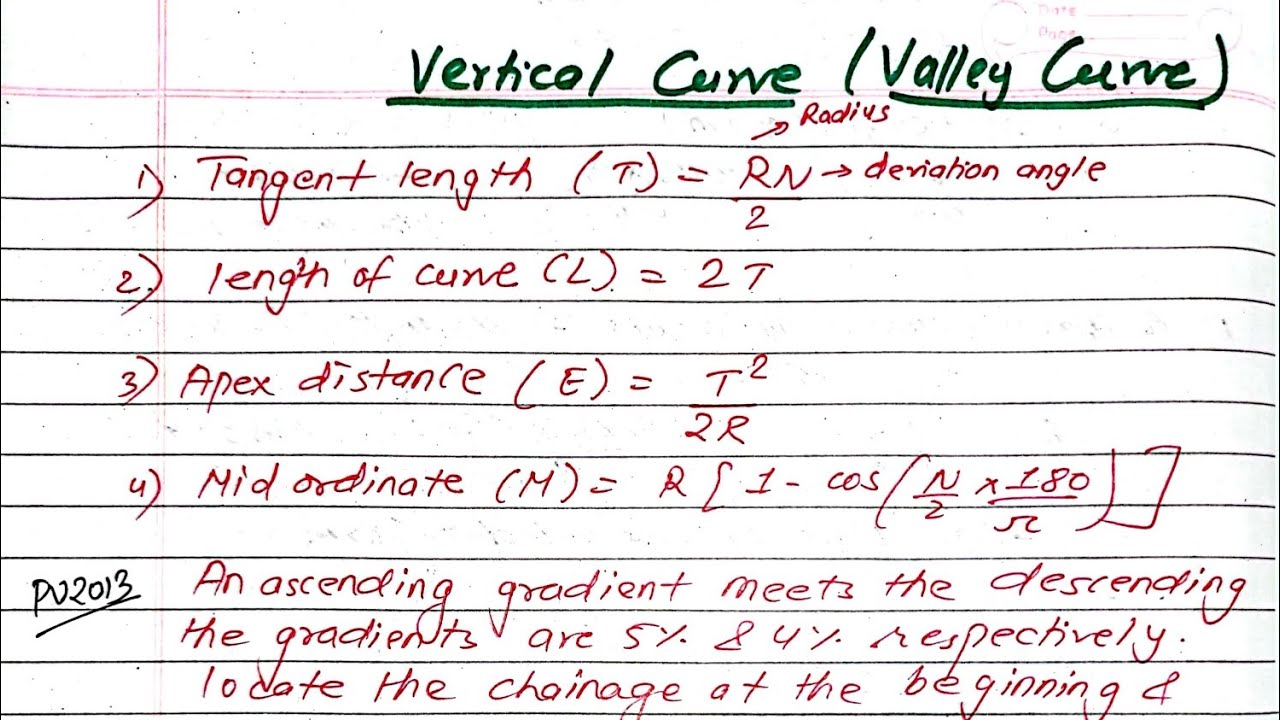 Date
Page
Vertical Curve (Valley Curve)
→ Radius
1) Tangent length (T) = RN → deviation angle
2
2) length of curve (L) = 2T
3) Apex distance (E) = T²
2R
4) Mid ordinate (M) = R [ 1 - cos ( N/2 × 180/π ) ]
PU2013 An ascending gradient meets the descending
the gradients are 5% & 4% respectively.
locate the chainage at the beginning &